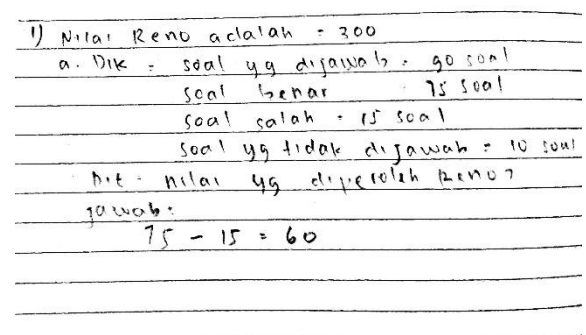 1) Nilai Reno adalah = 300
a. Dik = soal yg dijawab = 90 soal
soal benar 75 soal
soal salah = 15 soal
soal yg tidak dijawab = 10 soal
Dit = nilai yg diperoleh Reno?
jawab:
75 - 15 = 60